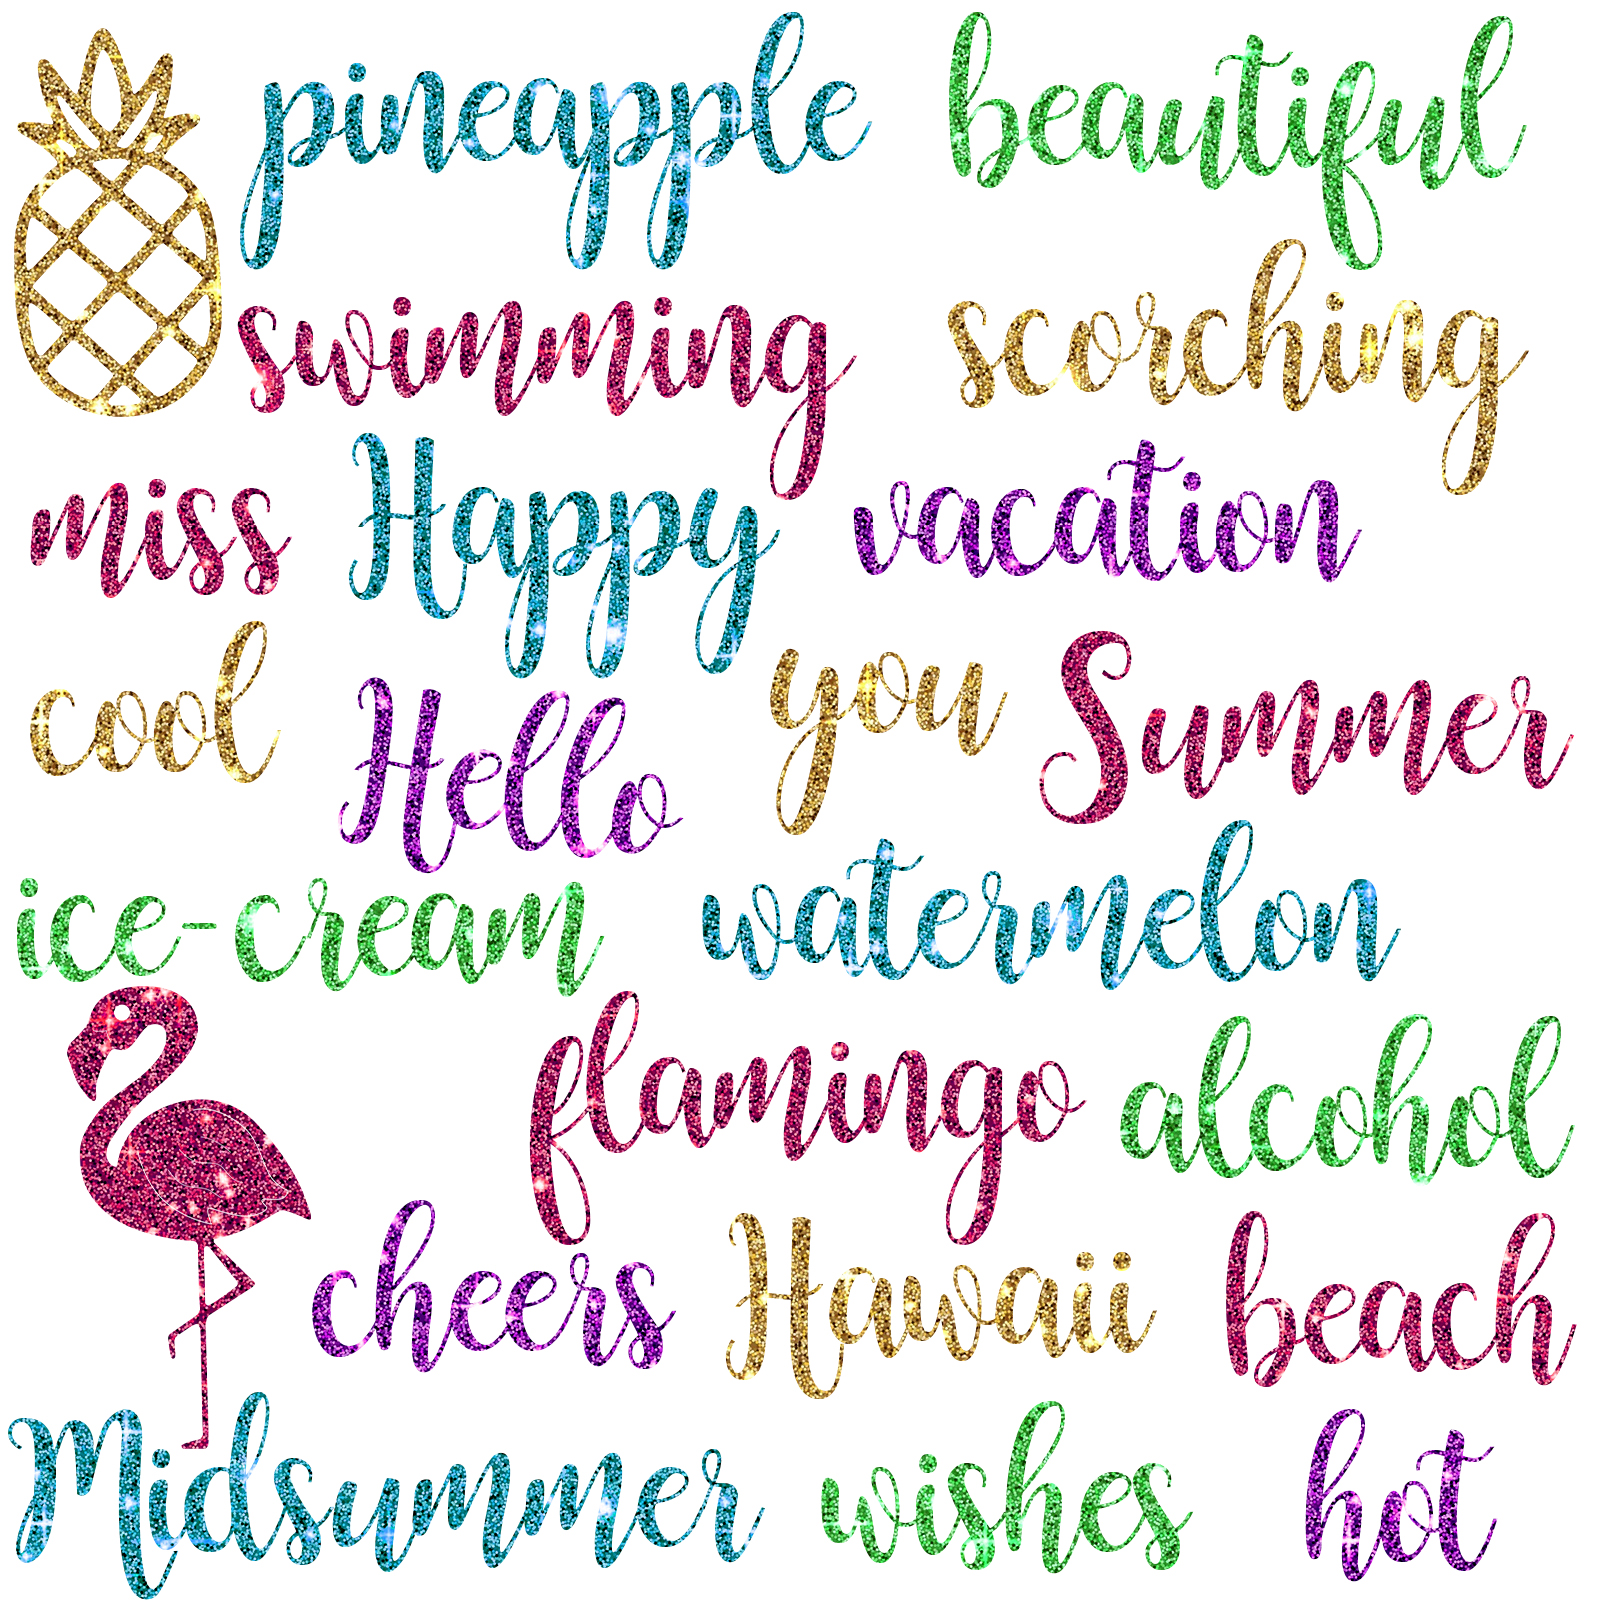 pineapple beautiful
swimming scorching
miss Happy vacation
cool Hello you Summer
ice-cream watermelon
flamingo alcohol
cheers Hawaii beach
Midsummer wishes hot